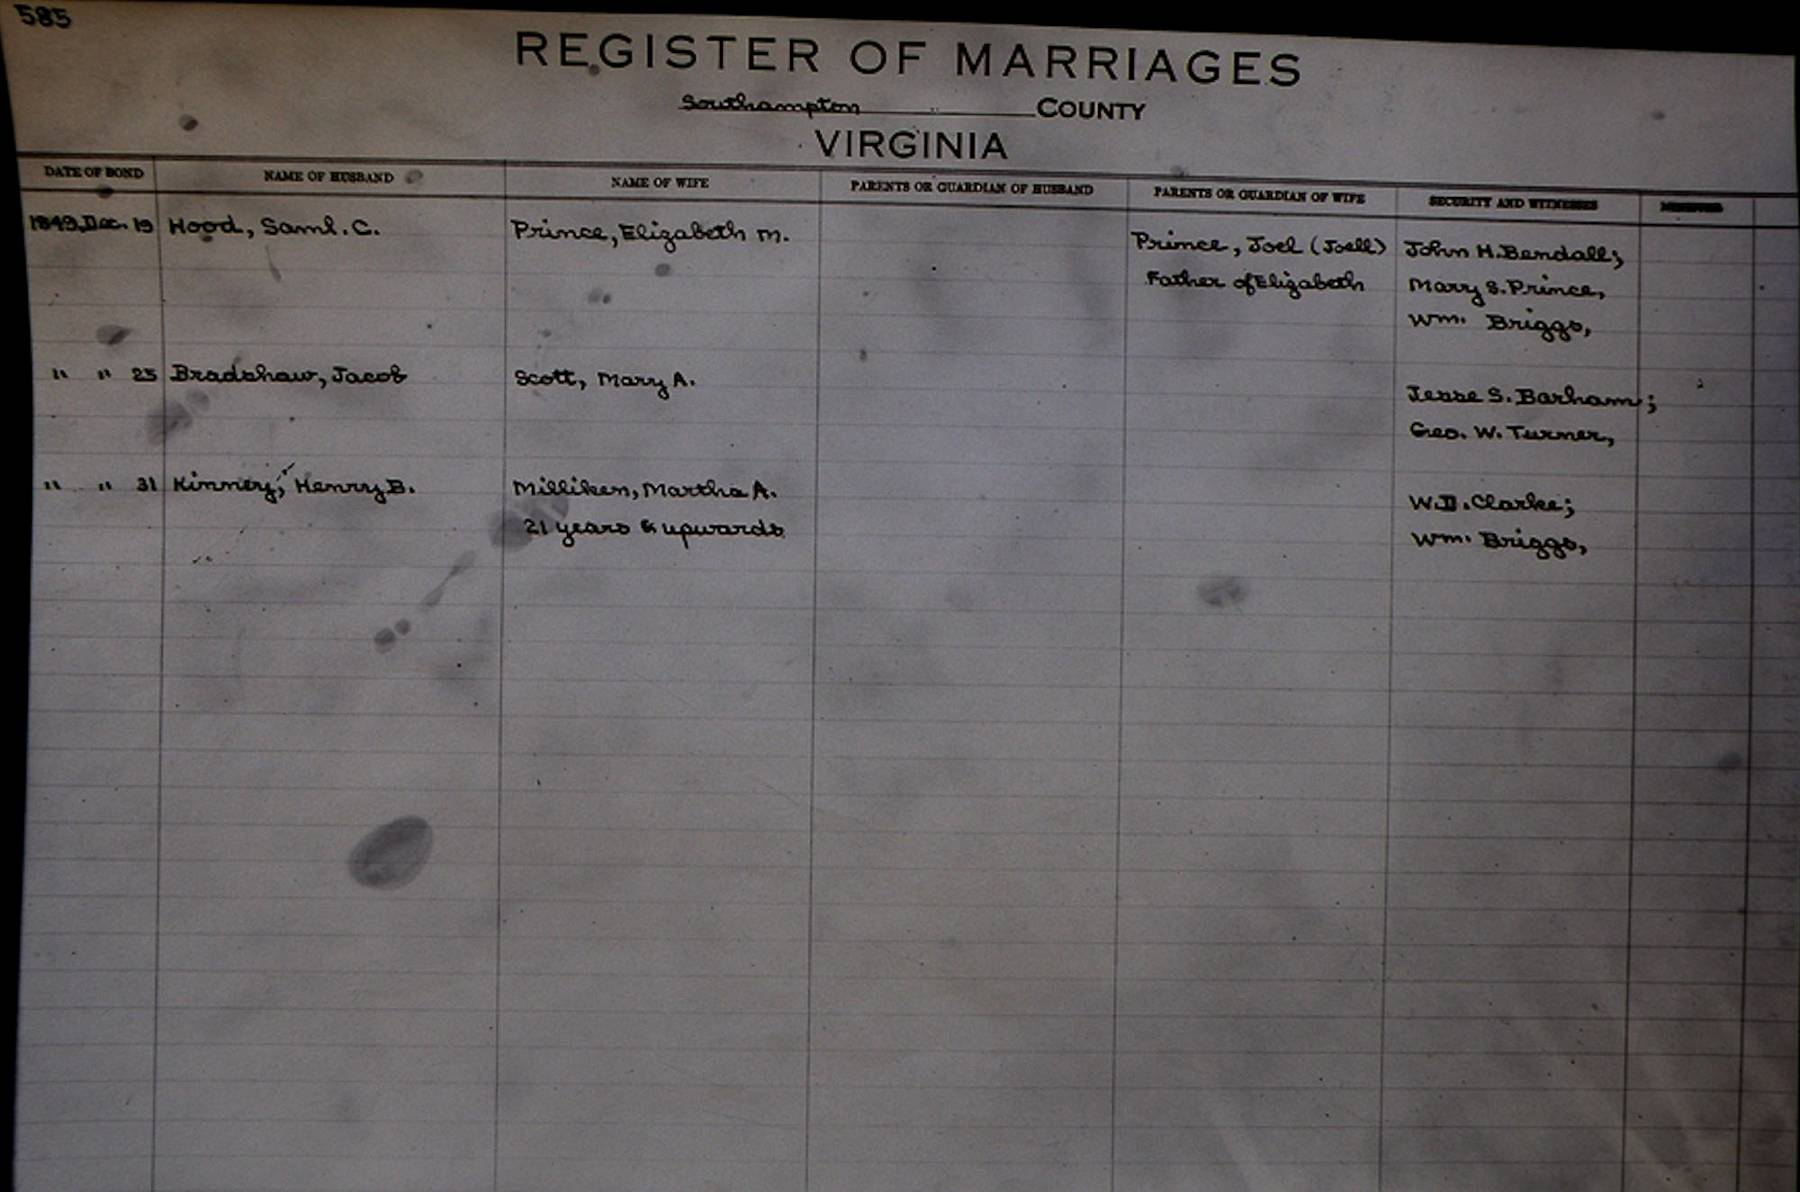 585
REGISTER OF MARRIAGES
Southampton COUNTY
VIRGINIA
DATE OF BOND NAME OF HUSBAND NAME OF WIFE PARENTS OR GUARDIAN OF HUSBAND PARENTS OR GUARDIAN OF WIFE SECURITY AND WITNESSES
1849, Dec. 19 Hood, Saml. C. Prince, Elizabeth M. Prince, Joel (Joell) John H. Bendall;
Father of Elizabeth Mary S. Prince,
Wm. Briggs,
" " 25 Bradshaw, Jacob Scott, Mary A. Jesse S. Barham;
Geo. W. Turner,
" " 31 Kinnery, Henry B. Milliken, Martha A. W.D. Clarke;
21 years & upwards Wm. Briggs,